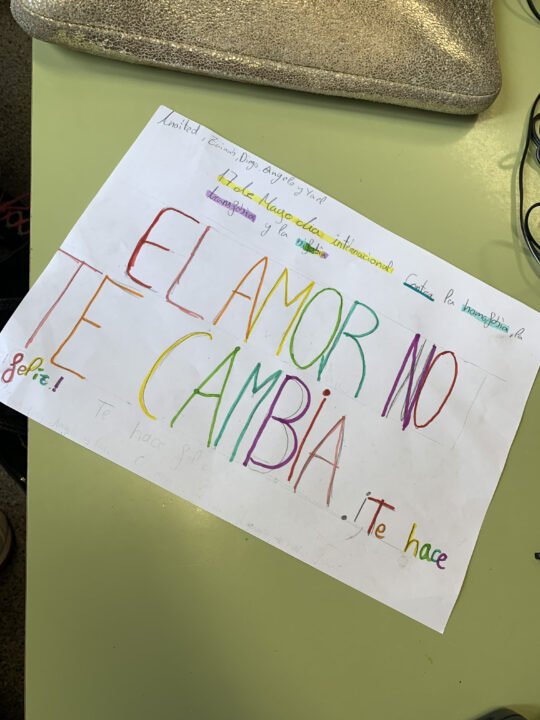 Diego, Angelo y Yael
17 de Mayo dia internacional Contra la homofobia, la
transfobia y la bifobia
EL AMOR NO
TE CAMBIA. ¡Te hace
feliz!
Te hace